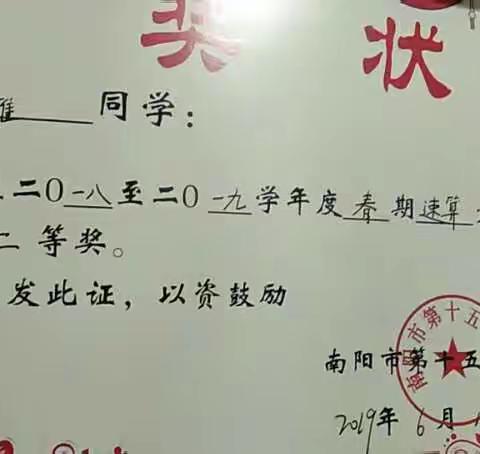 奖状
同学：
二〇一八至二〇一九学年度春期速算
二等奖。
发此证，以资鼓励
南阳市第十五
南阳市第十五
2019年6月